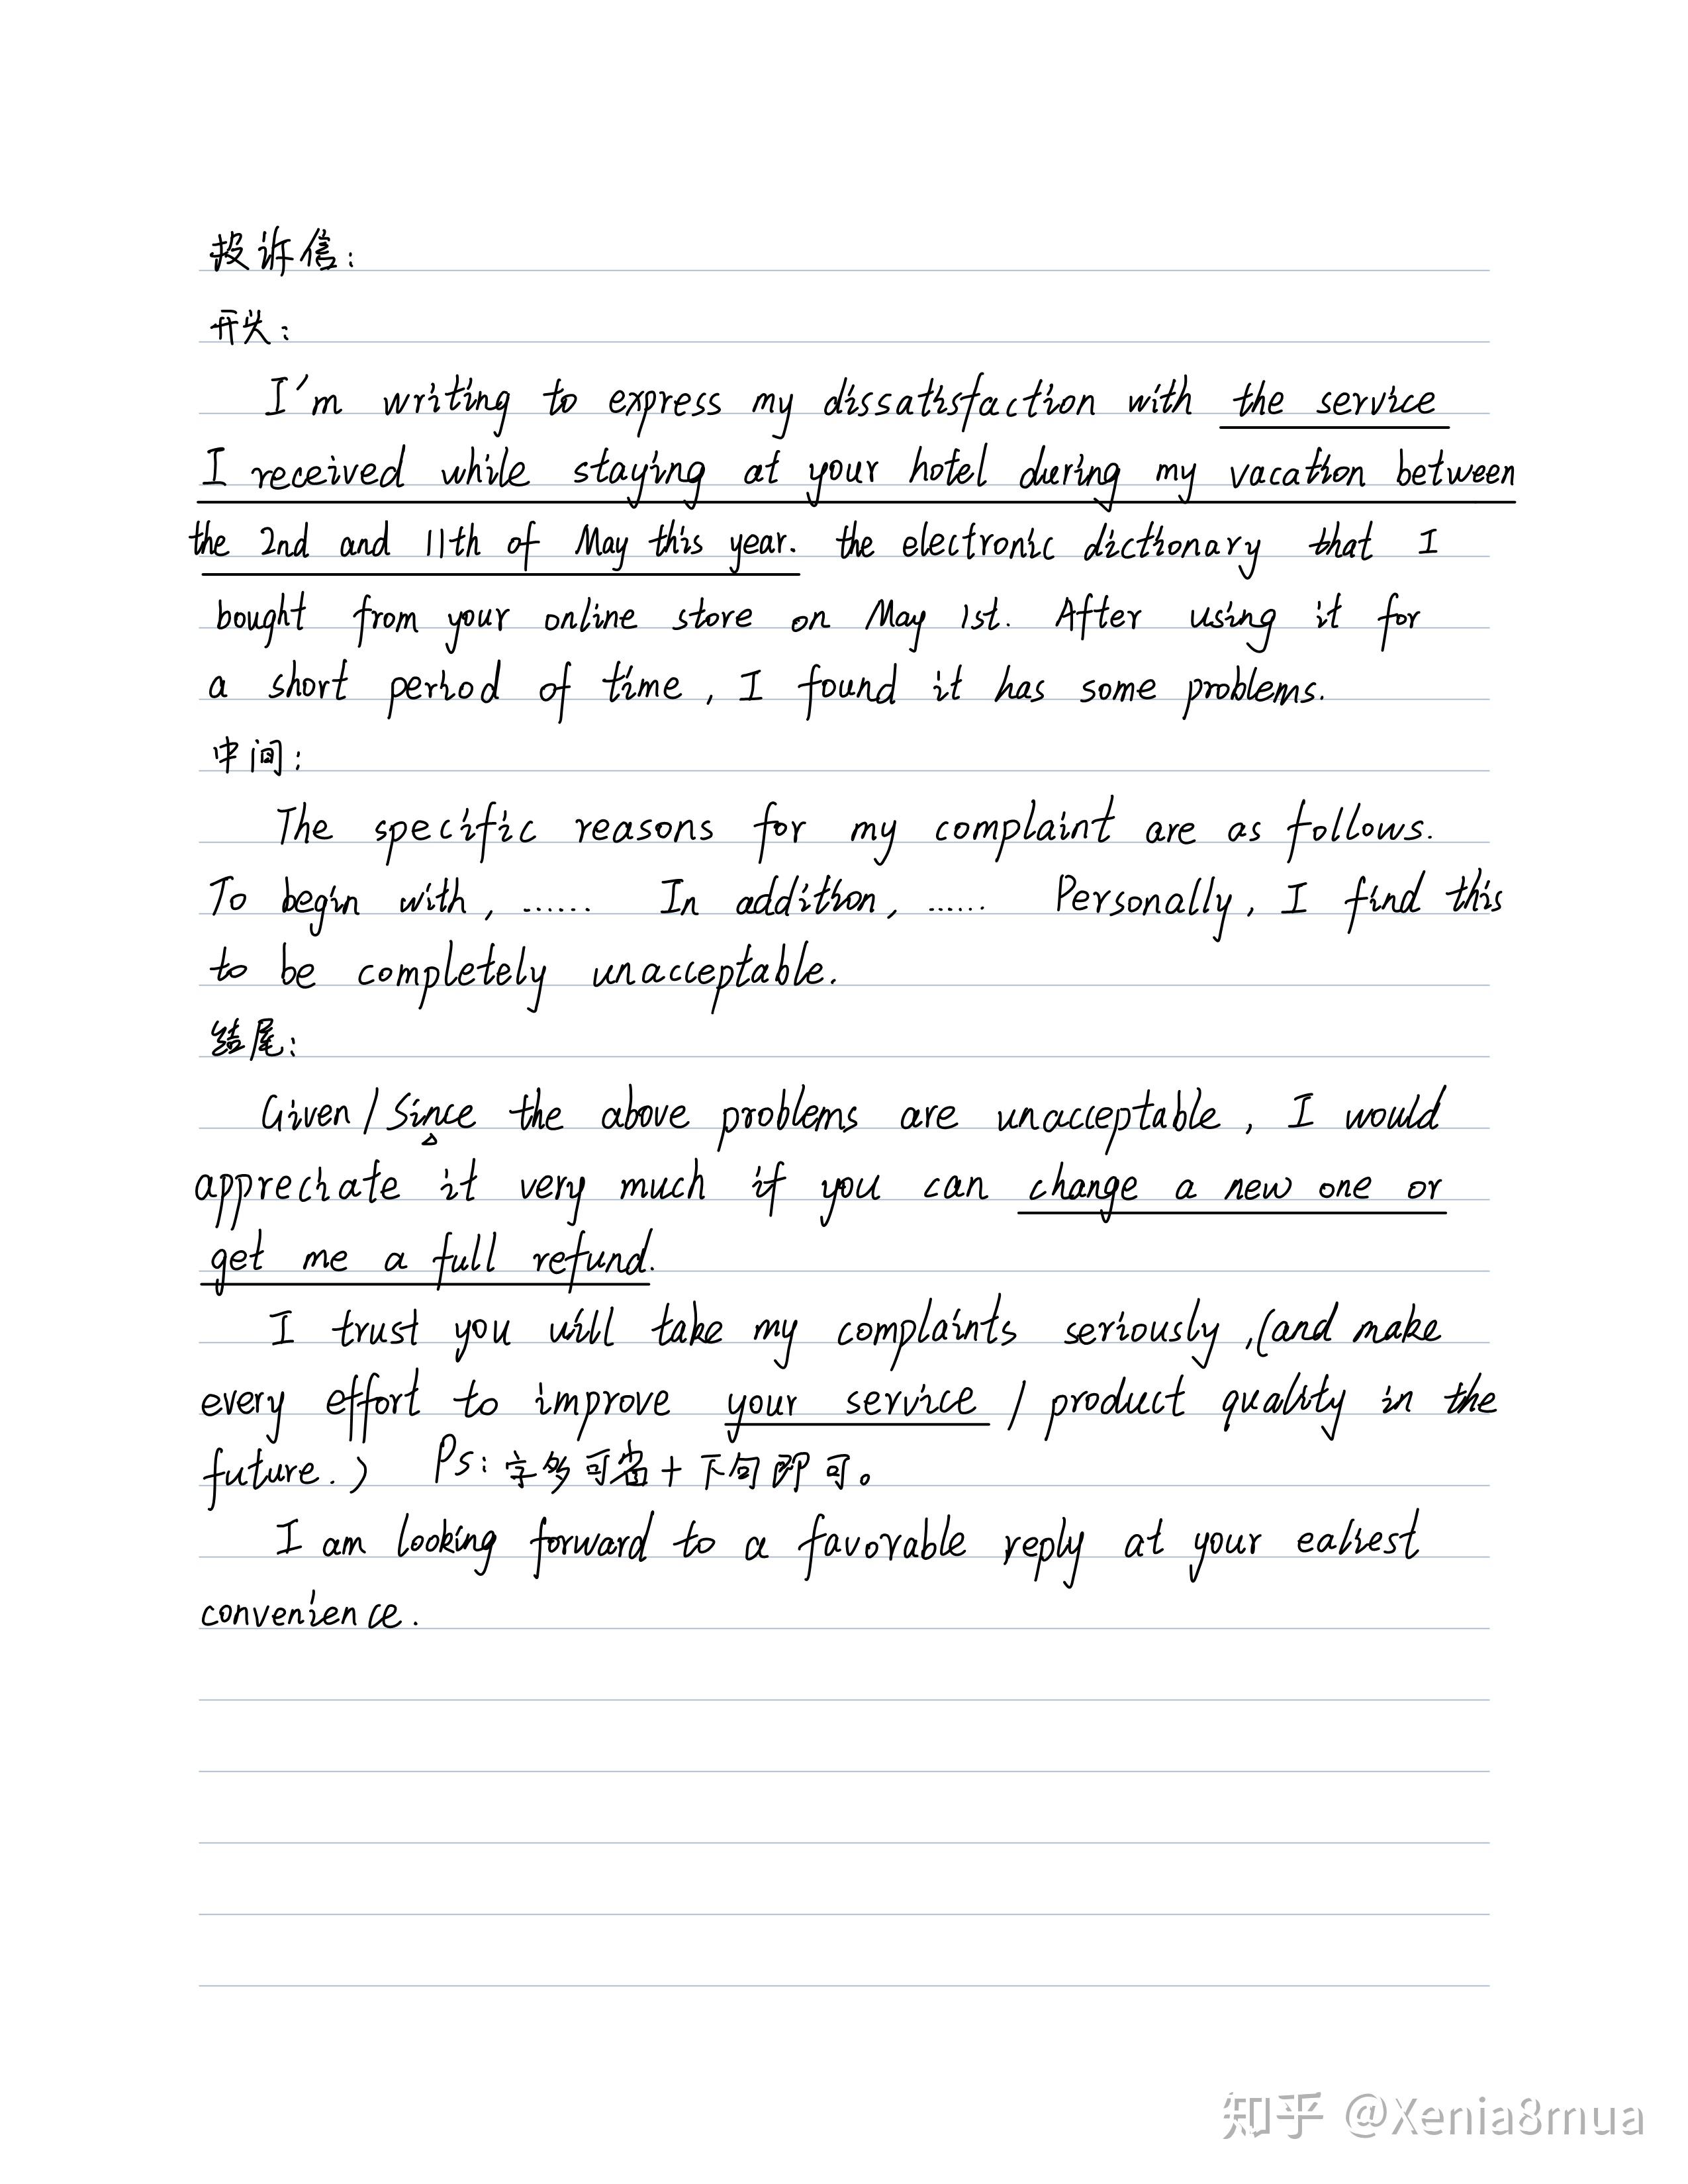 投诉信:
开头:
I'm writing to express my dissatisfaction with the service
I received while staying at your hotel during my vacation between
the 2nd and 11th of May this year. the electronic dictionary that I
bought from your online store on May 1st. After using it for
a short period of time, I found it has some problems.
中间:
The specific reasons for my complaint are as follows.
To begin with, ...... In addition, ...... Personally, I find this
to be completely unacceptable.
结尾:
Given / Since the above problems are unacceptable, I would
appreciate it very much if you can change a new one or
get me a full refund.
I trust you will take my complaints seriously, (and make
every effort to improve your service / product quality in the
future.) Ps: 字多可省+下句即可。
I am looking forward to a favorable reply at your ealiest
convenience.
知乎 @Xenia8mua